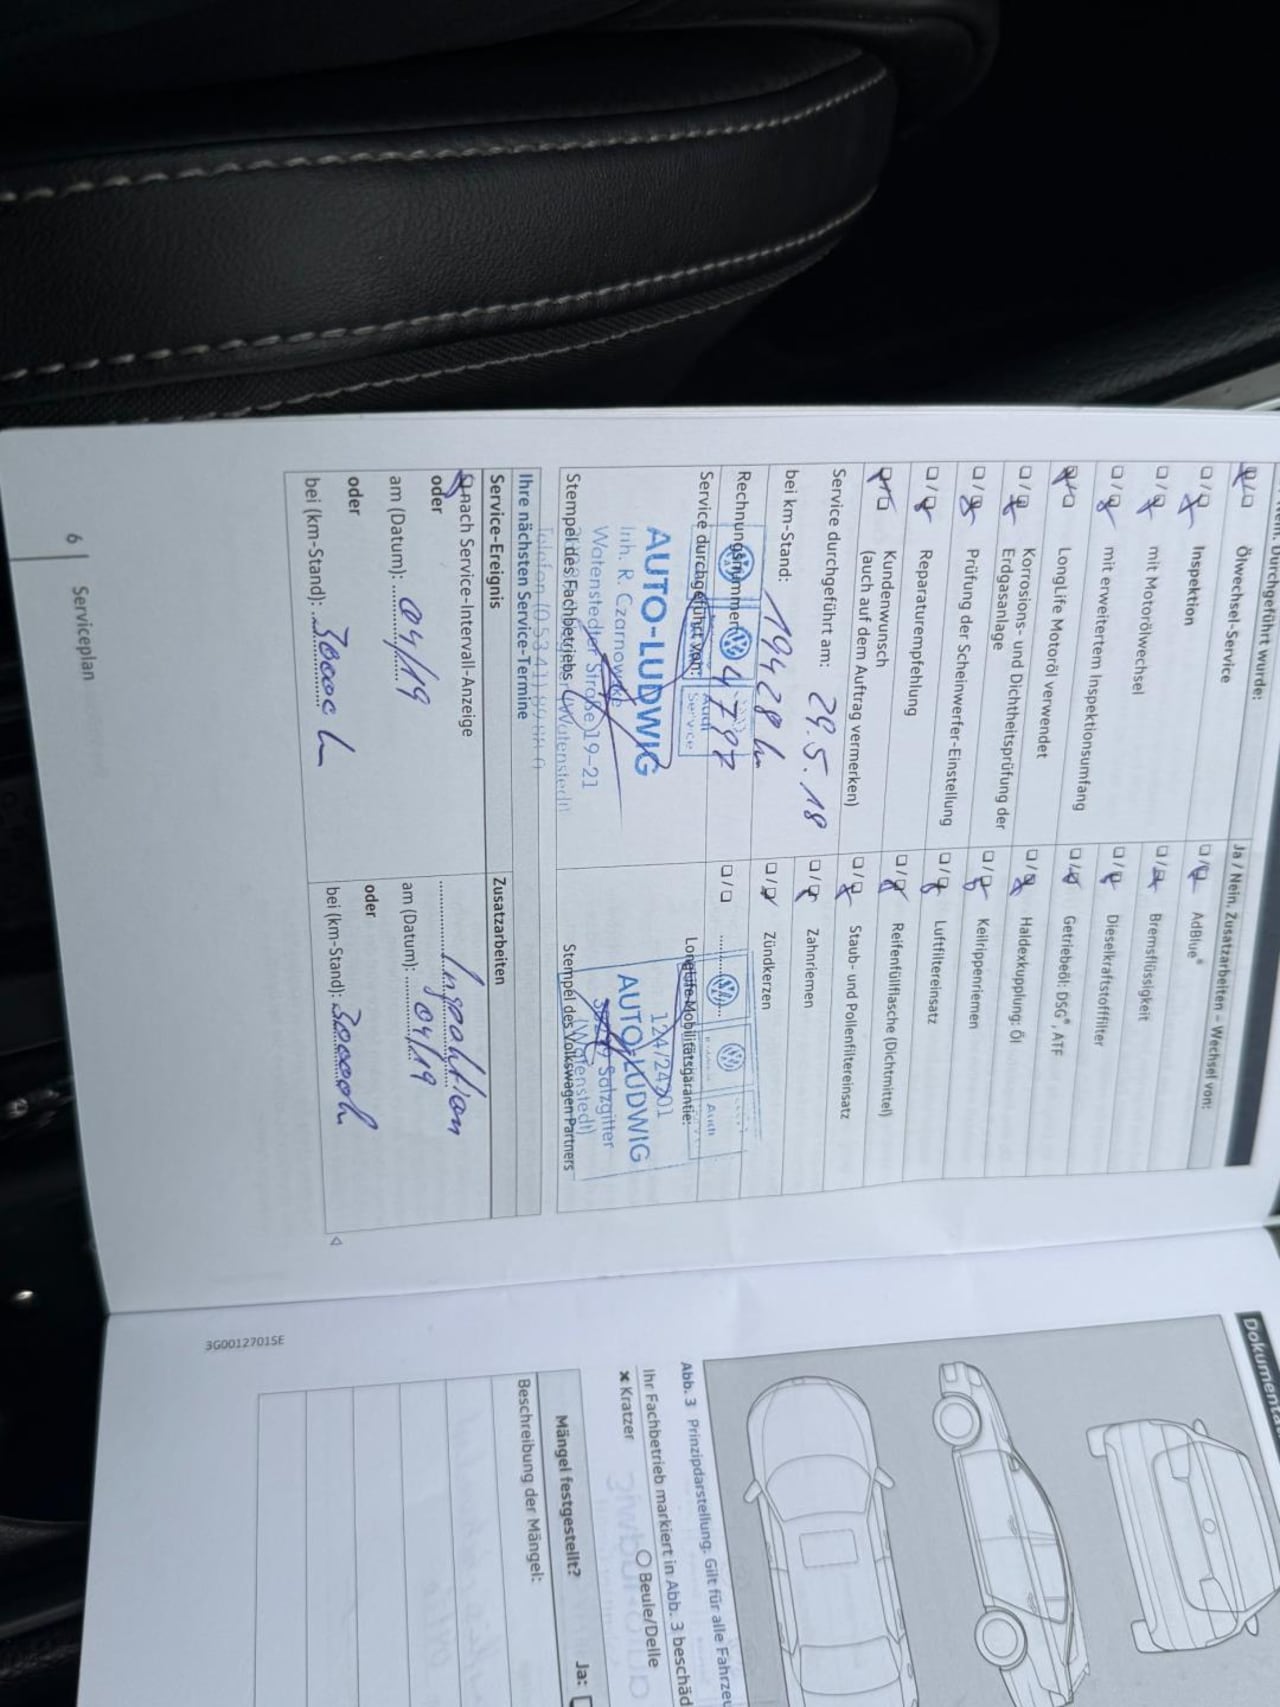 Durchgeführt wurde:
Ölwechsel-Service
Inspektion
mit Motorölwechsel
mit erweitertem Inspektionsumfang
LongLife Motoröl verwendet
Korrosions- und Dichtheitsprüfung der
Erdgasanlage
Prüfung der Scheinwerfer-Einstellung
Reparaturempfehlung
Kundenwunsch
(auch auf dem Auftrag vermerken)
Service durchgeführt am: 29.5.18
bei km-Stand: 19428 km
Rechnungsnummer: 4797
Service durchgeführt von:
Audi
Service
AUTO-LUDWIG
Inh. R. Czarnowske
Watenstedter Straße 19-21
(Watenstedt)
Stempel des Fachbetriebs
Ja / Nein. Zusatzarbeiten – Wechsel von:
AdBlue®
Bremsflüssigkeit
Dieselkraftstofffilter
Getriebeöl: DSG®, ATF
Haldexkupplung: Öl
Keilrippenriemen
Luftfiltereinsatz
Reifenfüllflasche (Dichtmittel)
Staub- und Pollenfiltereinsatz
Zahnriemen
Zündkerzen
LongLife Mobilitätsgarantie:
Audi
124/24701
AUTO-LUDWIG
Salzgitter
(Watenstedt)
Stempel des Volkswagen Partners
Ihre nächsten Service-Termine
Service-Ereignis
nach Service-Intervall-Anzeige
oder
am (Datum): 04/19
oder
bei (km-Stand): 30000 km
Zusatzarbeiten
Inspektion
am (Datum): 04/19
oder
bei (km-Stand): 30000 km
6 Serviceplan
3G0012701SE
Abb. 3 Prinzipdarstellung. Gilt für alle
Ihr Fachbetrieb markiert in Abb. 3
× Kratzer O Beule/Delle
Mängel festgestellt? Ja:
Beschreibung der Mängel: